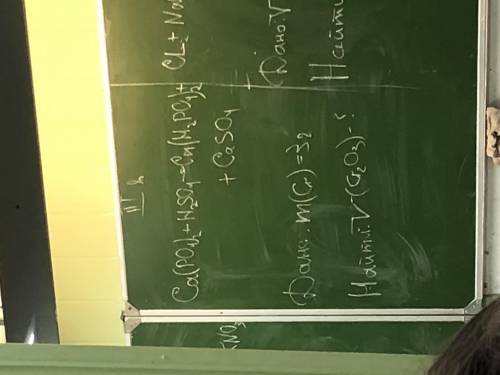 II в
Ca(PO4)2 + H2SO4 = Ca(H2PO4)2 +
+ CaSO4
Дано: m(Cr) = 3г
Найти: V(Cr2O3) - ?
Cl2 + Na
Дано: V
Найти
KNO3